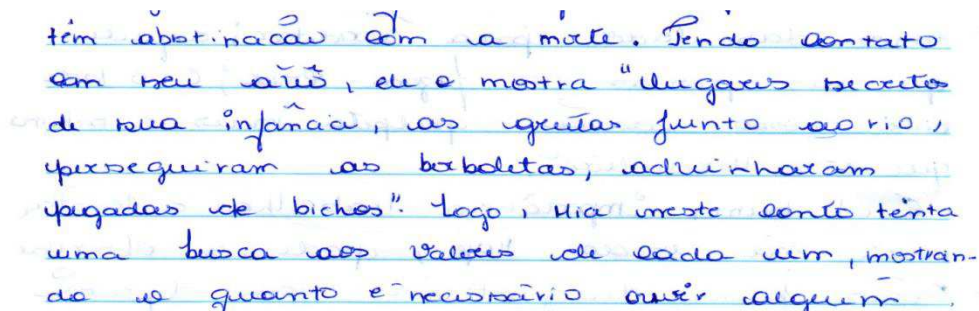 têm abstinação com a morte. Tendo contato
com seu avô, ele o mostra "lugares secretos
de sua infância, as grutas junto ao rio,
perseguiram as borboletas, adivinharam
pegadas de bichos". Logo, Mia neste conto tenta
uma busca aos valores de cada um, mostran-
do o quanto é necessário ouvir alguem.